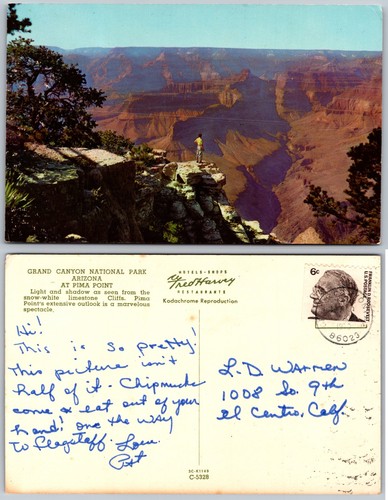 GRAND CANYON NATIONAL PARK
ARIZONA
AT PIMA POINT
Light and shadow as seen from the
snow-white limestone Cliffs. Pima
Point's extensive outlook is a marvelous
spectacle.
HOTELS · SHOPS
Fred Harvey
RESTAURANTS
Kodachrome Reproduction
6¢
FRANKLIN D. ROOSEVELT
U.S. POSTAGE
86023
Hi!
This is so pretty!
This picture isn't
half of it - Chipmucks
come & eat out of your
hand! One the way
To Flagstaff. Love
Pat
L. D Warren
1008 So. 9th
el Centro, Calf.
C-5328